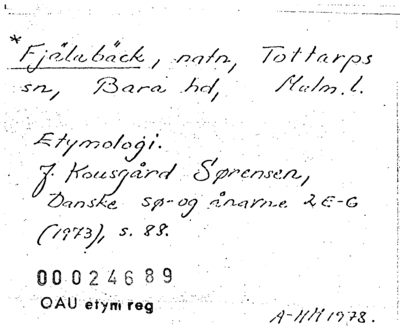 *Fjälabäck, natn, Tottarps
sn, Bara hd, Malm. l.
Etymologi.
J. Kousgård Sørensen,
Danske sø- og ånavne 2 E-G
(1973), s. 88.
00024689
OAU etym reg
A-HM 1978.